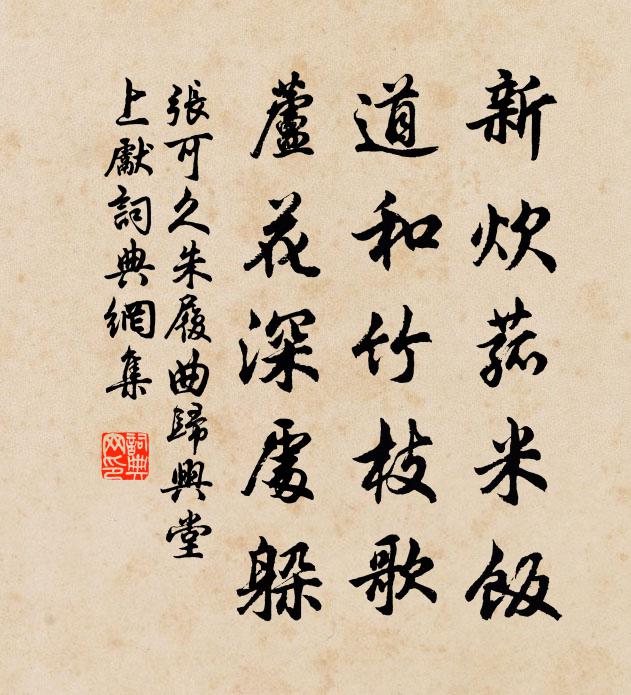 新炊菰米飯
道和竹枝歌
蘆花深處躲
張可久朱履曲歸興堂
上獻詞典網集
詞典网印